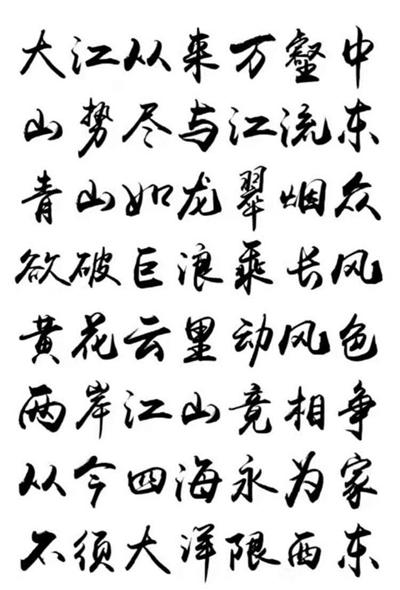 大江从来万壑中
山势尽与江流东
青山如龙翠烟众
欲破巨浪乘长风
黄花云里动风色
两岸江山竟相争
从今四海永为家
不须大洋限西东